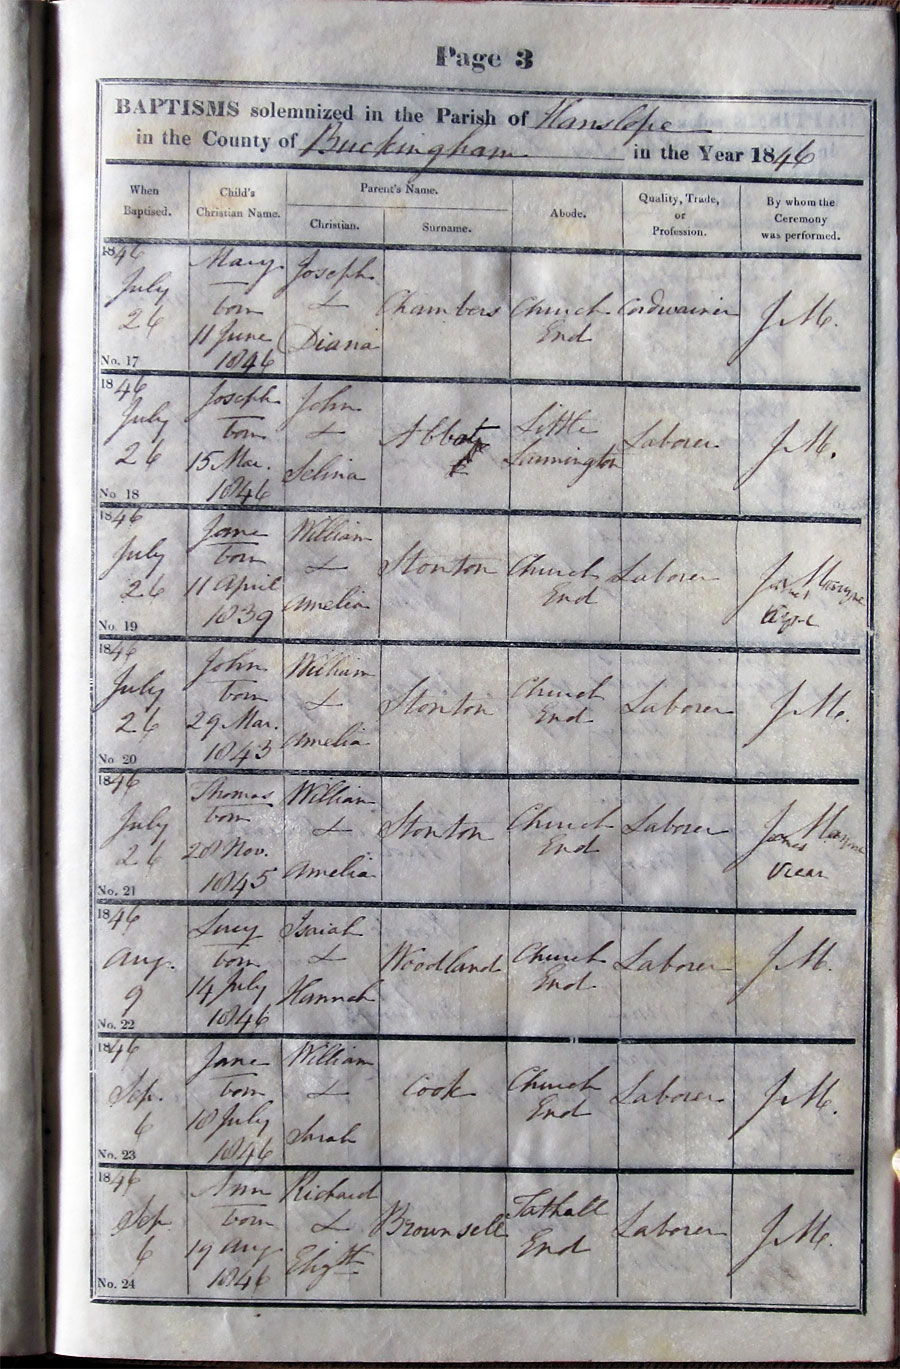 Page 3
BAPTISMS solemnized in the Parish of Hanslope
in the County of Buckingham in the Year 1846
When Baptised.
Child's Christian Name.
Parent's Name.
Christian.
Surname.
Abode.
Quality, Trade, or Profession.
By whom the Ceremony was performed.
1846
July
26
No. 17
Mary
born
11 June
1846
Joseph
&
Diana
Chambers
Church
End
Cordwainer
J M.
1846
July
26
No 18
Joseph
born
15 Mar.
1846
John
&
Selina
Abbot
Little
Laborer
J M.
1846
July
26
No. 19
Jane
born
11 April
1839
William
&
Amelia
Stonton
Church
End
Laborer
James Mayne
1846
July
26
No 20
John
born
29 Mar.
1843
William
&
Amelia
Stonton
Church
End
Laborer
J M.
1846
July
26
No. 21
Thomas
born
28 Nov.
1845
William
&
Amelia
Stonton
Church
End
Laborer
James Mayne
Vicar
1846
Aug.
9
No. 22
Lucy
born
14 July
1846
Isaiah
&
Hannah
Woodland
Church
End
Laborer
J M.
1846
Sep.
6
No. 23
Jane
born
18 July
1846
William
&
Sarah
Cook
Church
End
Laborer
J M.
1846
Sep
6
No. 24
Ann
born
19 Aug
1846
Richard
&
Elizth
Brownsell
Tathall
End
Laborer
J M.